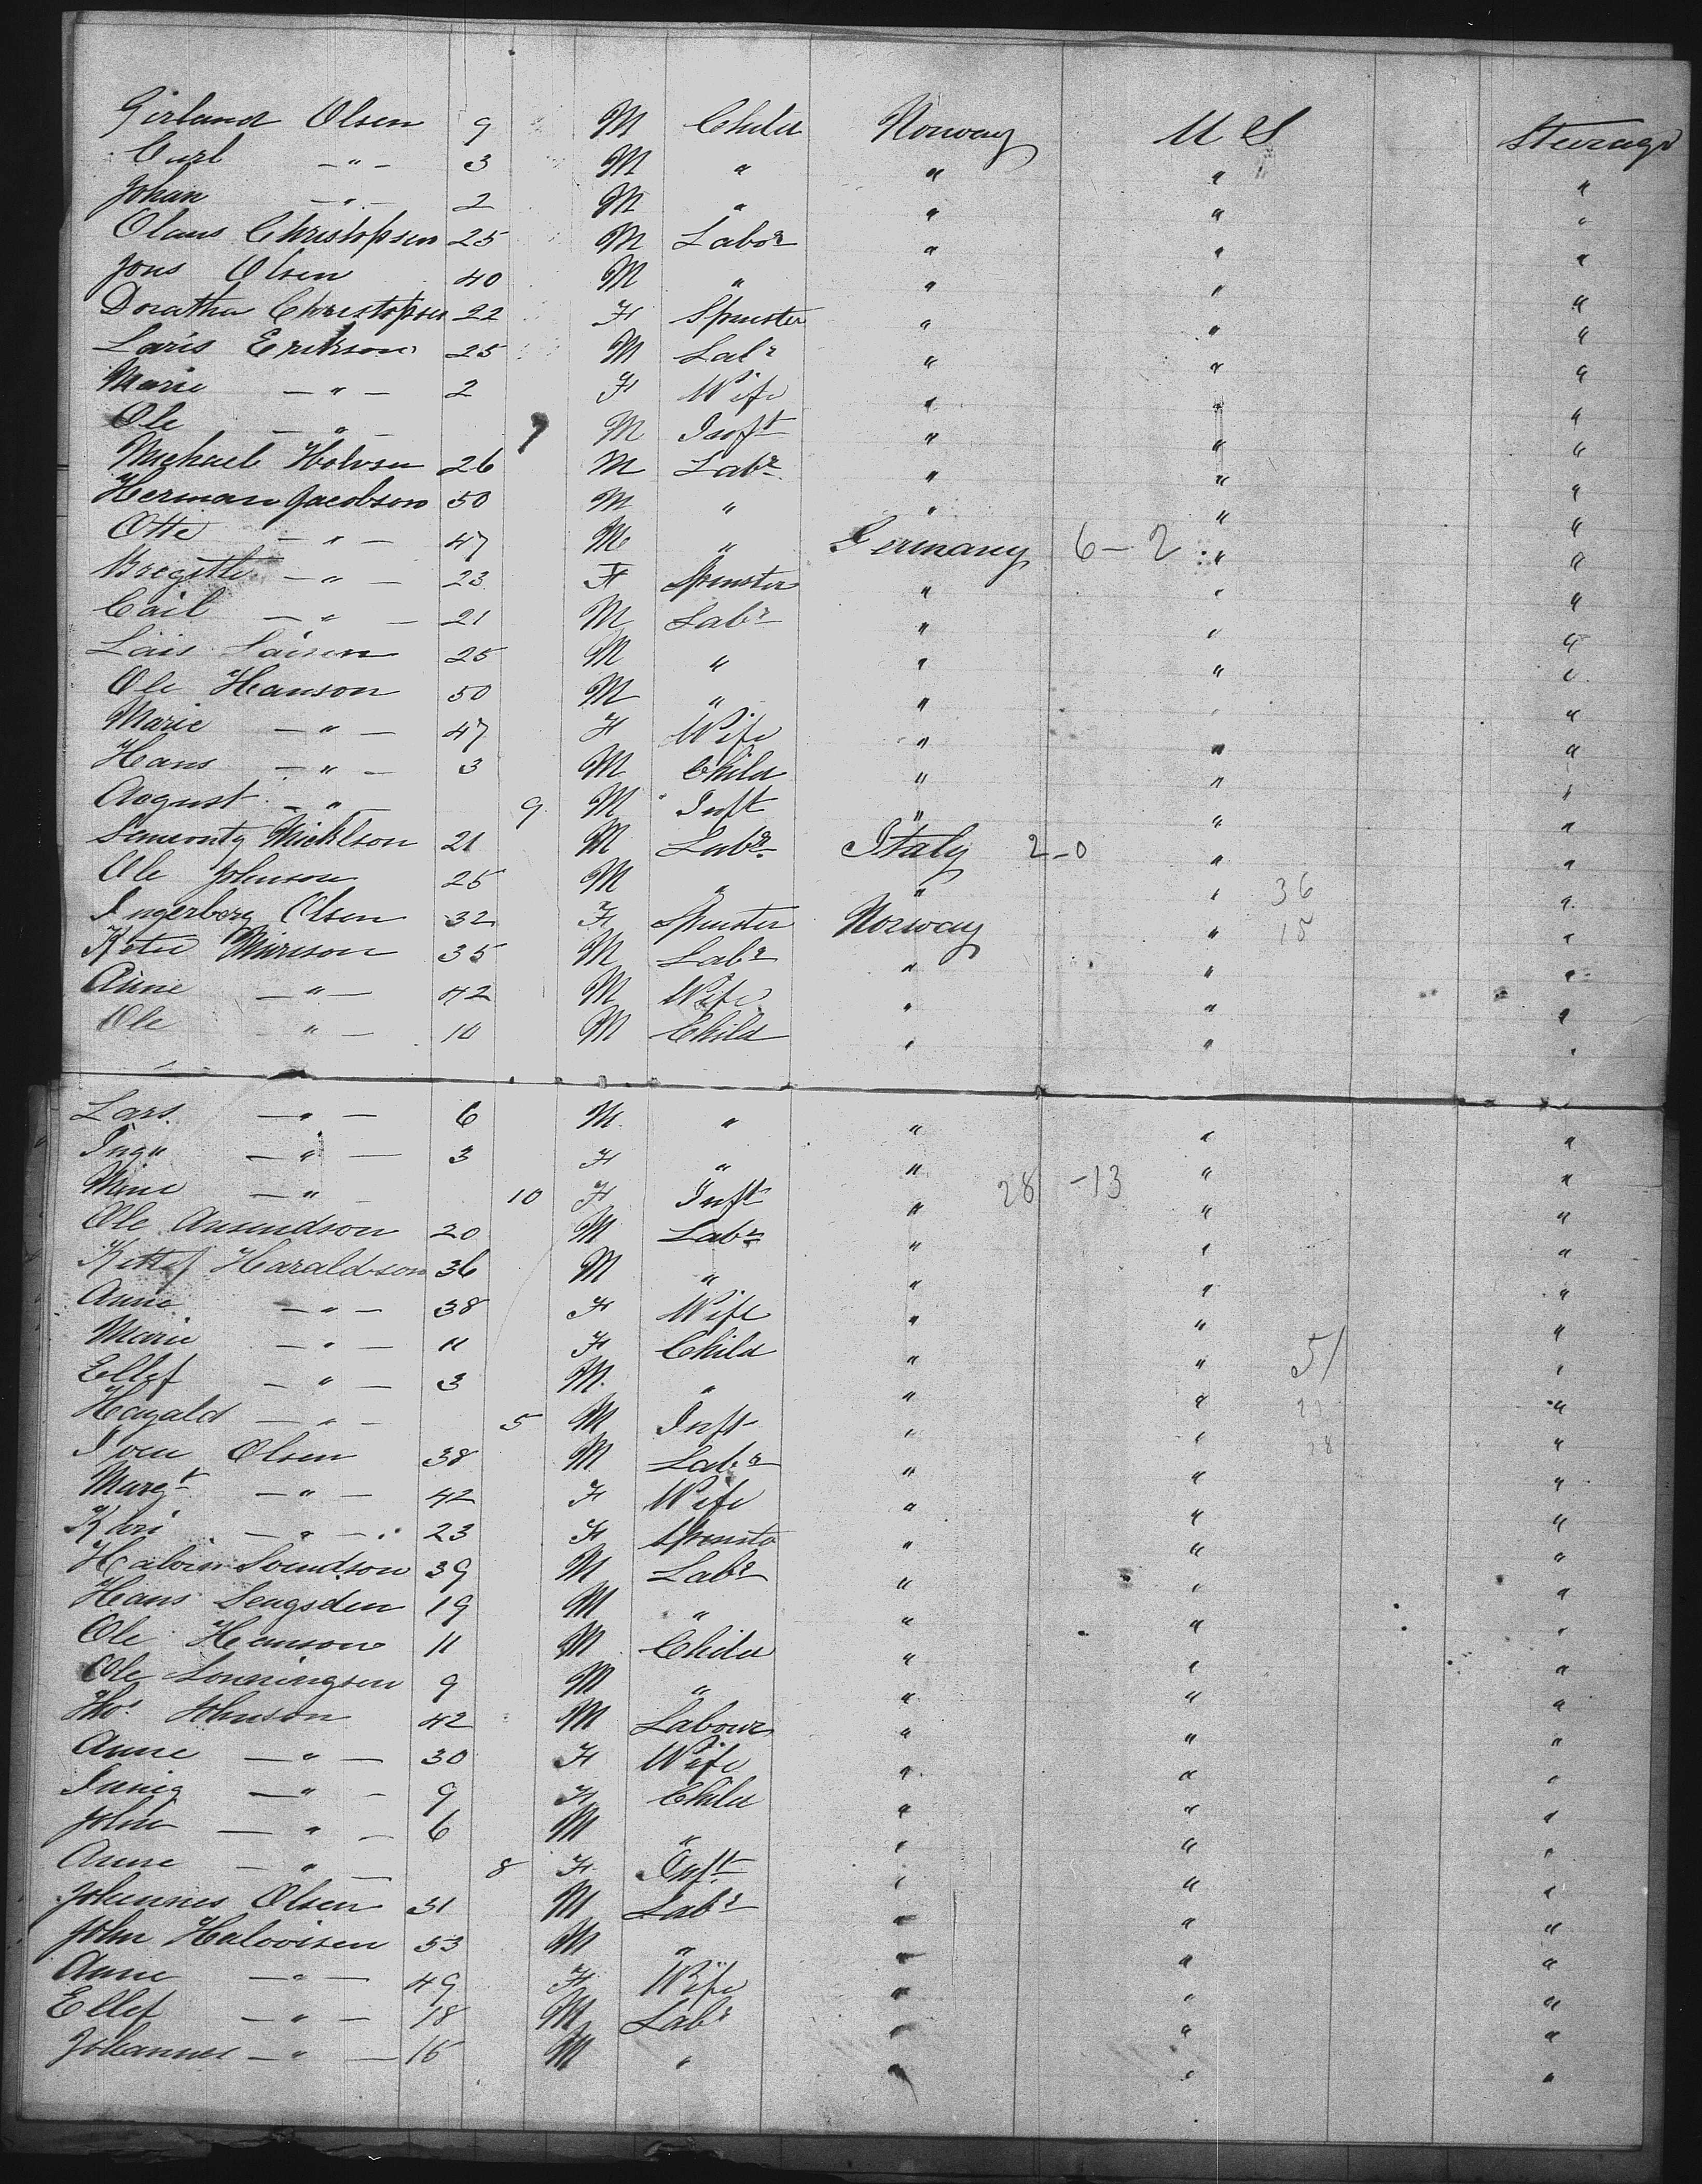 Girland Olsen 9 M Child Norway U S Steerage
Carl — " — 3 M " " " "
Johan — " — 2 M " " " "
Olaus Christopsen 25 M Labor " " "
Jons Olsen 40 M " " " "
Doratha Christopsen 22 F Spinster " " "
Laris Erikson 25 M Labr " " "
Marie — " — 2 F Wife " " "
Ole — " — 7 M Inft " " "
Michael Holvsen 26 M Labr " " "
Herman Jacobson 50 M " " " "
Otte — " — 47 M " Germany 6 - 2 " "
Bregitte — " — 23 F Spinster " " "
Cail — " — 21 M Labr " " "
Lais Laisen 25 M " " " "
Ole Hanson 50 M " " " "
Marie — " — 47 F Wife " " "
Hans — " — 3 M Child " " "
August — " — 9 M Inft " " "
Micklson 21 M Labr Italy 2 - 0 " "
Ole Johnson 25 M " " " 36 "
Ingerborg Olsen 32 F Spinster Norway " 15 "
35 M Labr " " "
Anne — " — 42 M Wife " " "
Ole " — 10 M Child " " "
Lars — " — 6 M " " " "
Inga — " — 3 F " " " "
Mine — " — 10 F Inft " 28 - 13 " "
Ole Ansundson 20 M Labr " " "
Kettef Haraldson 36 M " " " "
Anne — " — 38 F Wife " " "
Marie — " — 11 F Child " " 51 "
Ellef — " — 3 M " " " "
Harald — " — 5 M Inft " " "
Iven Olsen 38 M Labr " " 28 "
Margt — " — 42 F Wife " " "
Kari — " — 23 F Spinster " " "
Halvor Svendson 39 M Labr " " "
Hans Sengsden 19 M " " " "
Ole Hanson 11 M Child " " "
Ole Sonningsen 9 M " " " "
Thos Johnson 42 M Labour " " "
Anne — " — 30 F Wife " " "
— " — 9 F Child " " "
John — " — 6 M " " " "
Anne — " — 8 F Inft " " "
Johannes Olsen 31 M Labr " " "
John Halvoisen 53 M " " " "
Anne — " — 49 F Wife " " "
Ellef — " — 18 M Labr " " "
Johannes — " — 16 M " " " "